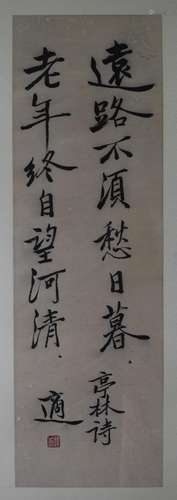 遠路不須愁日暮．
老年終自望河清．
亭林詩
適